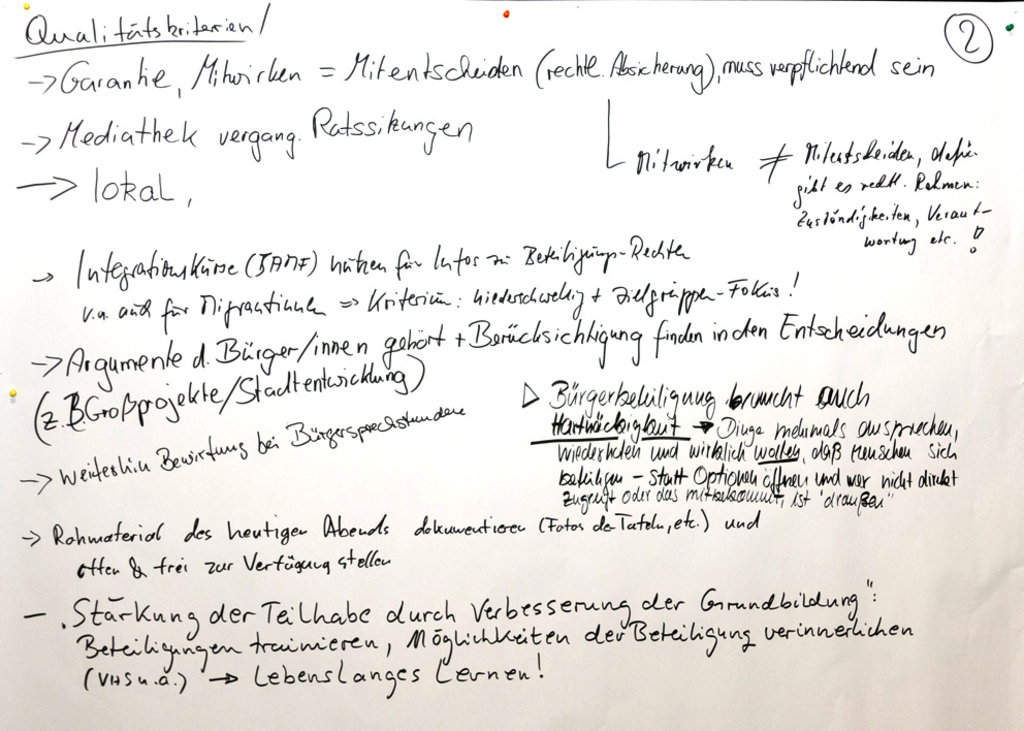 Qualitätskriterien/
2
→ Garantie, Mitwirken = Mitentscheiden (rechtl. Absicherung), muss verpflichtend sein
Mitwirken ≠ Mitentscheiden, dafür
gibt es rechtl. Rahmen:
Zuständigkeiten, Verant-
wortung etc. !
→ Mediathek vergang. Ratssitzungen
→ lokal,
→ Integrationskurse (BAMF) nutzen für Infos zu Beteiligungs-Rechten
v.a. auch für MigrantInnen => Kriterium: niederschwellig + Zielgruppen-Fokus!
→ Argumente d. Bürger/innen gehört + Berücksichtigung finden in den Entscheidungen
(z.B. Großprojekte/Stadtentwicklung)
→ Weiterhin Bewirtung bei Bürgersprechstunden
▷ Bürgerbeteiligung braucht auch
Hartnäckigkeit → Dinge mehrmals ansprechen,
wiederholen und wirklich wollen, daß Menschen sich
beteiligen – statt Optionen öffnen und wer nicht direkt
zugreift oder das mitbekommt, ist "draußen"
→ Rohmaterial des heutigen Abends dokumentieren (Fotos der Tafeln, etc.) und
offen & frei zur Verfügung stellen
– „Stärkung der Teilhabe durch Verbesserung der Grundbildung":
Beteiligungen trainieren, Möglichkeiten der Beteiligung verinnerlichen
(VHS u.a.) → Lebenslanges Lernen!